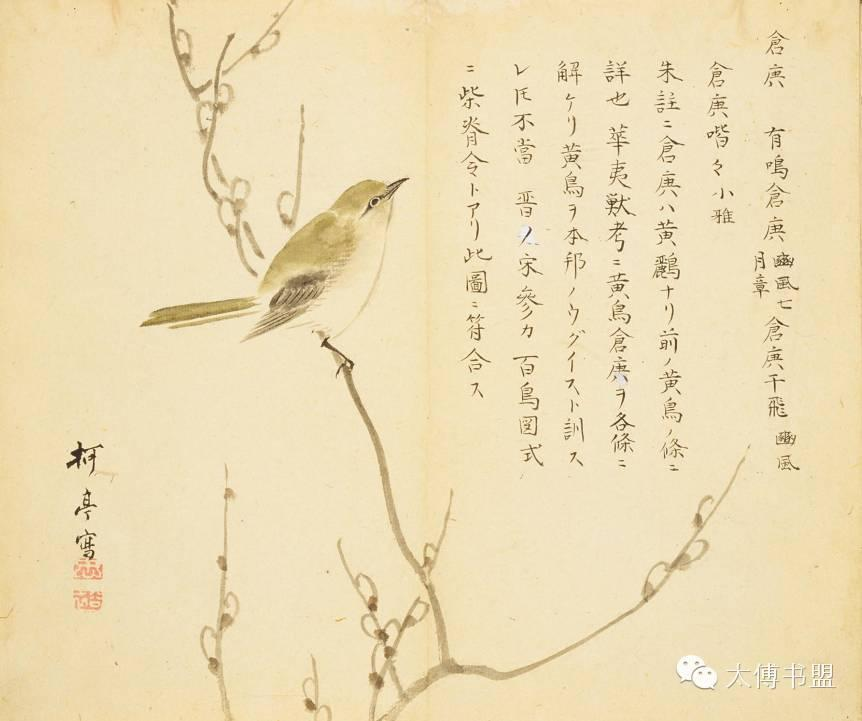 倉庚 有鳴倉庚 豳風七月章 倉庚于飛 豳風
倉庚喈々 小雅
朱註ニ倉庚ハ黄鸝ナリ前ノ黄鳥ノ條ニ
詳也 華夷獣考ニ黄鳥倉庚ヲ各條ニ
解ケリ黄鳥ヲ本邦ノウグイスト訓ス
レ𪜈不當 晋ノ宋參カ 百鳥図式
ニ柴脊令トアリ此圖ニ符合ス
柯亭寫
太傅书盟